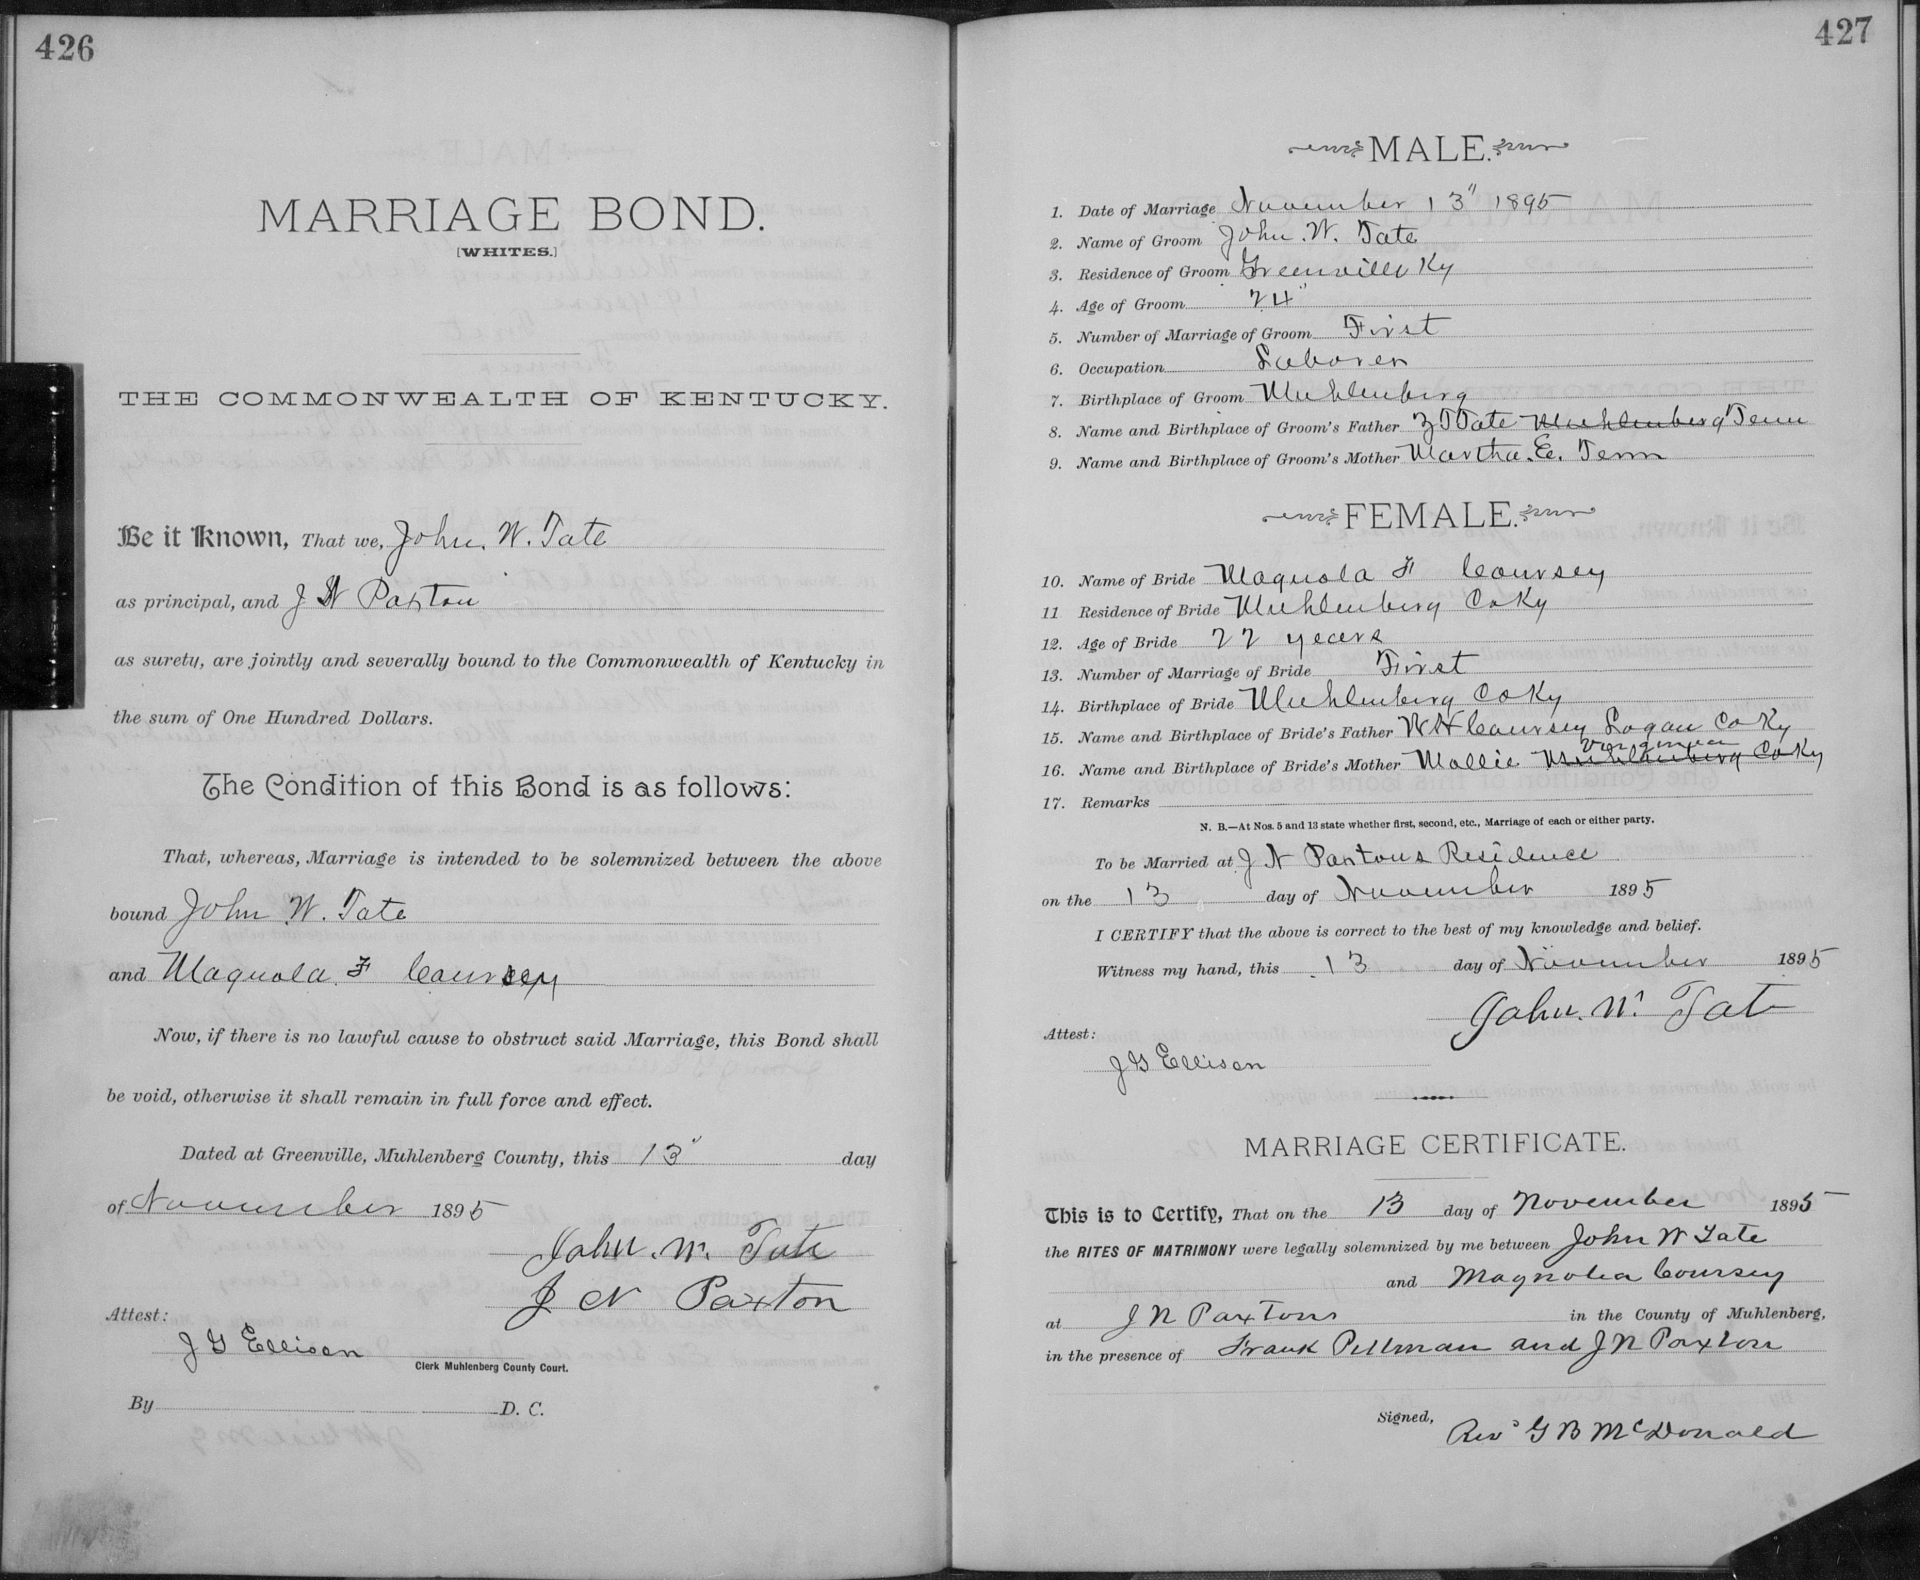 426
MARRIAGE BOND.
[WHITES.]
THE COMMONWEALTH OF KENTUCKY.
Be it Known, That we, John. W. Tate
as principal, and J N Paxton
as surety, are jointly and severally bound to the Commonwealth of Kentucky in
the sum of One Hundred Dollars.
The Condition of this Bond is as follows:
That, whereas, Marriage is intended to be solemnized between the above
bound John W. Tate
and Magnola F Coursey
Now, if there is no lawful cause to obstruct said Marriage, this Bond shall
be void, otherwise it shall remain in full force and effect.
Dated at Greenville, Muhlenberg County, this 13" day
of November 1895
John. W. Tate
J N Paxton
Attest:
J G Ellison
Clerk Muhlenberg County Court.
By D. C.
427
MALE.
1. Date of Marriage November 13" 1895
2. Name of Groom John. W. Tate
3. Residence of Groom Greenville Ky
4. Age of Groom 24"
5. Number of Marriage of Groom First
6. Occupation Laborer
7. Birthplace of Groom Muhlenberg
8. Name and Birthplace of Groom's Father Tate Muhlenberg Tenn
9. Name and Birthplace of Groom's Mother Martha. E. Tenn
FEMALE.
10. Name of Bride Magnola F Coursey
11 Residence of Bride Muhlenberg Co Ky
12. Age of Bride 22 years
13. Number of Marriage of Bride First
14. Birthplace of Bride Muhlenberg Co Ky
15. Name and Birthplace of Bride's Father W H Coursey Logan Co Ky
16. Name and Birthplace of Bride's Mother Mollie Muhlenberg Co Ky
17. Remarks
N. B.—At Nos. 5 and 13 state whether first, second, etc., Marriage of each or either party.
To be Married at J N Paxtons Residence
on the 13 day of November 1895
I CERTIFY that the above is correct to the best of my knowledge and belief.
Witness my hand, this 13 day of November 1895
John. W. Tate
Attest:
J G Ellison
MARRIAGE CERTIFICATE.
This is to Certify, That on the 13 day of November 1895
the RITES OF MATRIMONY were legally solemnized by me between John W Tate
and Magnolia Coursey
at J N Paxtons in the County of Muhlenberg,
in the presence of Frank Pittman and J N Paxton
Signed, Rev G B McDonald